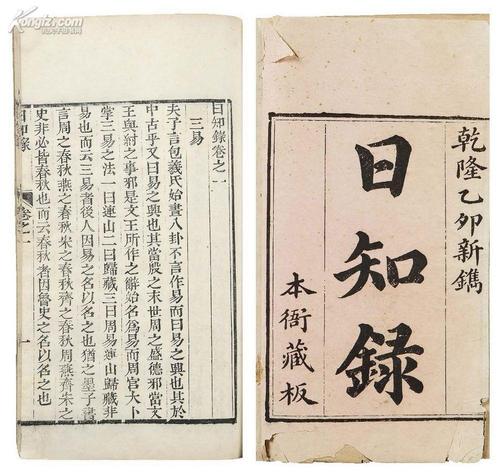 Kongfz.com
乾隆乙卯新鐫
日知錄
本衙藏板
日知錄卷之一
三易
夫子言包羲氏始畫八卦不言作易而曰易之興也其於
中古乎又曰易之興也其當殷之末世周之盛德邪當文
王與紂之事邪是文王所作之辭始名爲易而周官大卜
掌三易之法一曰連山二曰歸藏三曰周易連山歸藏非
易也而云三易者後人因易之名以名之也猶之墨子書
言周之春秋燕之春秋宋之春秋齊之春秋周燕齊宋之
史非必皆春秋也而云春秋者因魯史之名以名之也
日知錄
卷之一
一